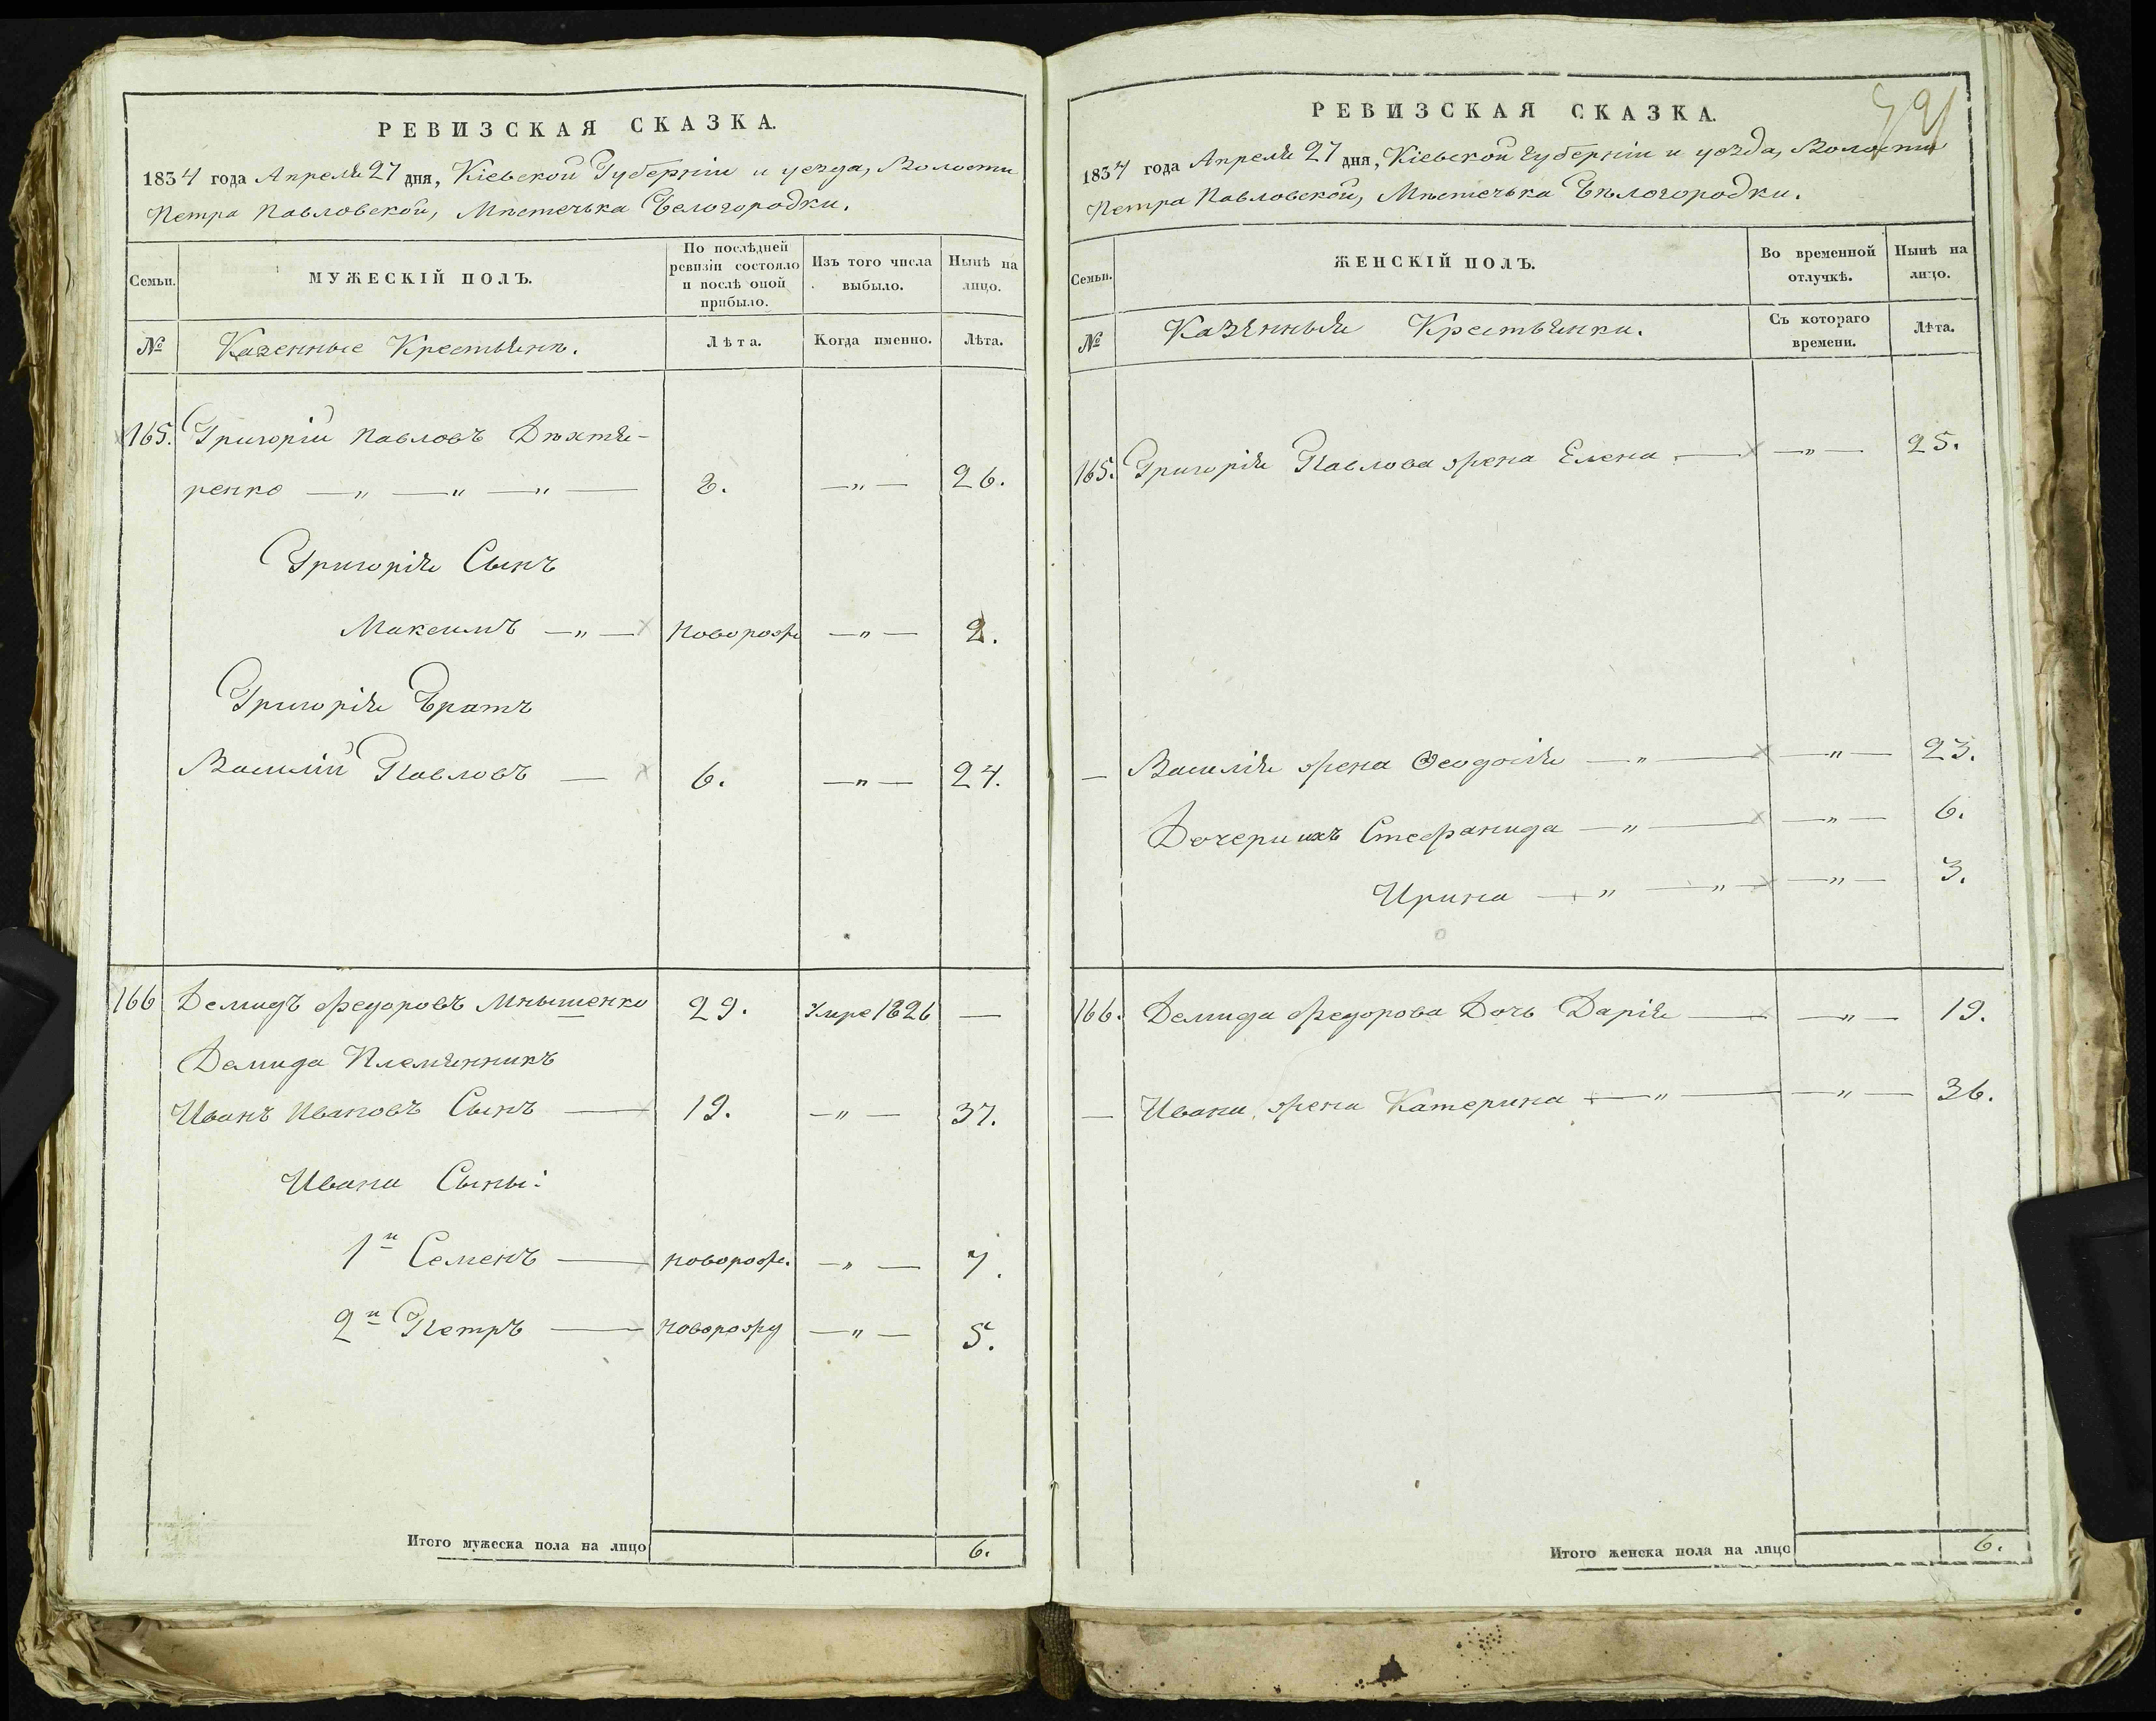 РЕВИЗСКАЯ СКАЗКА.
1834 года Апреля 27 дня, Кіевской Губерніи и уезда, Волости
Петра Павловской, Мѣстечька Белогородки.
Семьи.
МУЖЕСКІЙ ПОЛЪ.
По послѣдней ревизіи состояло и послѣ оной прибыло.
Изъ того числа выбыло.
Ныпѣ на лицо.
№
Казенные Крестьянѣ.
Лѣта.
Когда именно.
Лѣта.
165. Григорій Павловъ Дѣхтя-
ренко — „ — „ — „ — 8. — „ — 26.
Григорія Сынъ
Максимъ — „ — новорож — „ — 2.
Григорія Братъ
Василій Павловъ — 6. — „ — 24.
166 Демидъ Федоровъ 29. Умре 1826 —
Демида Племянникъ
Иванъ Ивановъ Сынъ — 19. — „ — 37.
Ивана Сыны:
1й Семенъ — новорож. — „ — 7.
2й Петръ — новорожд — „ — 5.
Итого мужеска пола на лицо 6.
РЕВИЗСКАЯ СКАЗКА.
1834 года Апреля 27 дня, Кіевской губерніи и уезда, Волости
Петра Павловской, Мѣстечька Бѣлогородки.
Семьи.
ЖЕНСКІЙ ПОЛЪ.
Во временной отлучкѣ.
Нынѣ на лицо.
№
Казянныя Крестьянки.
Съ котораго времени.
Лѣта.
165. Григорія Павлова жена Елена — — „ — 25.
— Василія жена Феодосія — „ — — „ — 23.
Дочери ихъ Стефанида — „ — — „ — 6.
Ирина — „ — „ — — „ — 3.
166. Демида Федорова Дочь Дарія — — „ — 19.
— Ивана жена Катерина — „ — — „ — 36.
Итого женска пола на лицо 6.